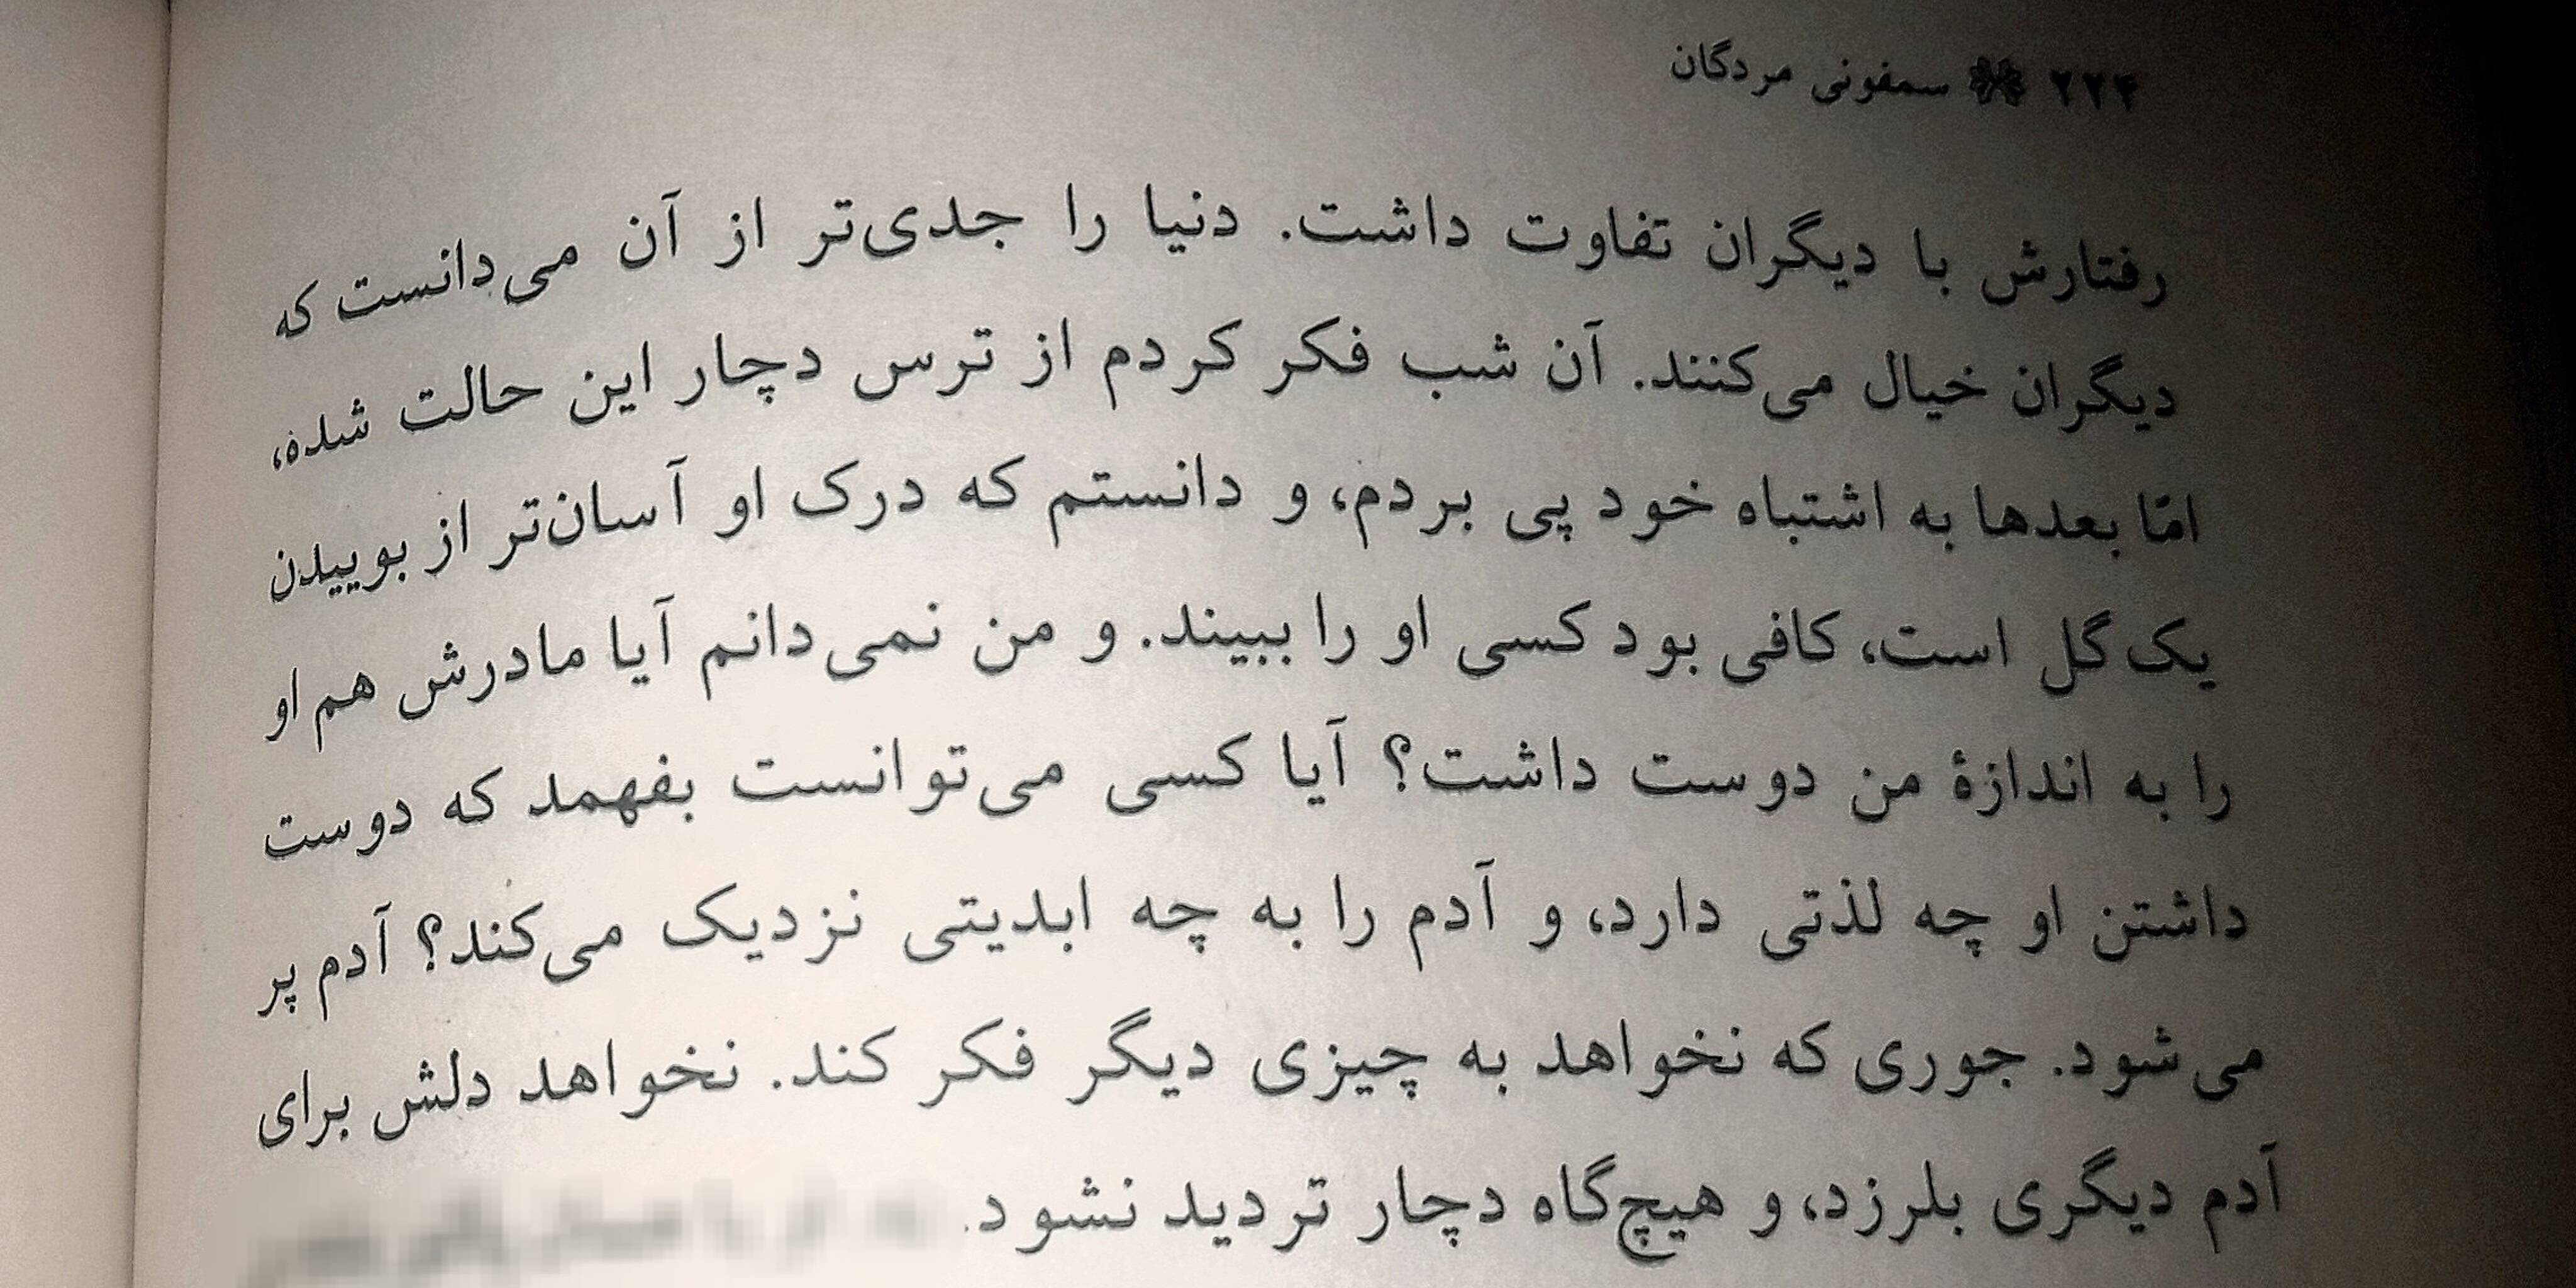 ۲۲۴ سمفونی مردگان
رفتارش با دیگران تفاوت داشت. دنیا را جدی‌تر از آن می‌دانست که
دیگران خیال می‌کنند. آن شب فکر کردم از ترس دچار این حالت شده،
امّا بعدها به اشتباه خود پی بردم، و دانستم که درک او آسان‌تر از بوییدن
یک گل است، کافی بود کسی او را ببیند. و من نمی‌دانم آیا مادرش هم او
را به اندازهٔ من دوست داشت؟ آیا کسی می‌توانست بفهمد که دوست
داشتن او چه لذتی دارد، و آدم را به چه ابدیتی نزدیک می‌کند؟ آدم پر
می‌شود. جوری که نخواهد به چیزی دیگر فکر کند. نخواهد دلش برای
آدم دیگری بلرزد، و هیچ‌گاه دچار تردید نشود.